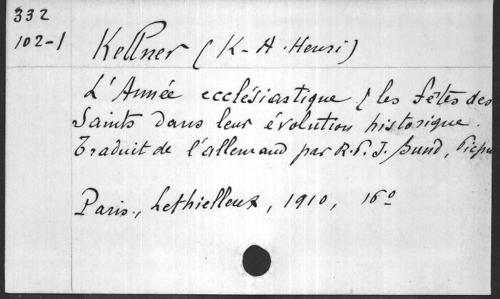 332
102-1
Kellner (K-A-Henri)
L'Année ecclésiastique & les fêtes des
Saints dans leur évolution historique.
Traduit de l'allemand par R.P.J. Bund,
Paris, Lethielleux, 1910, 16°